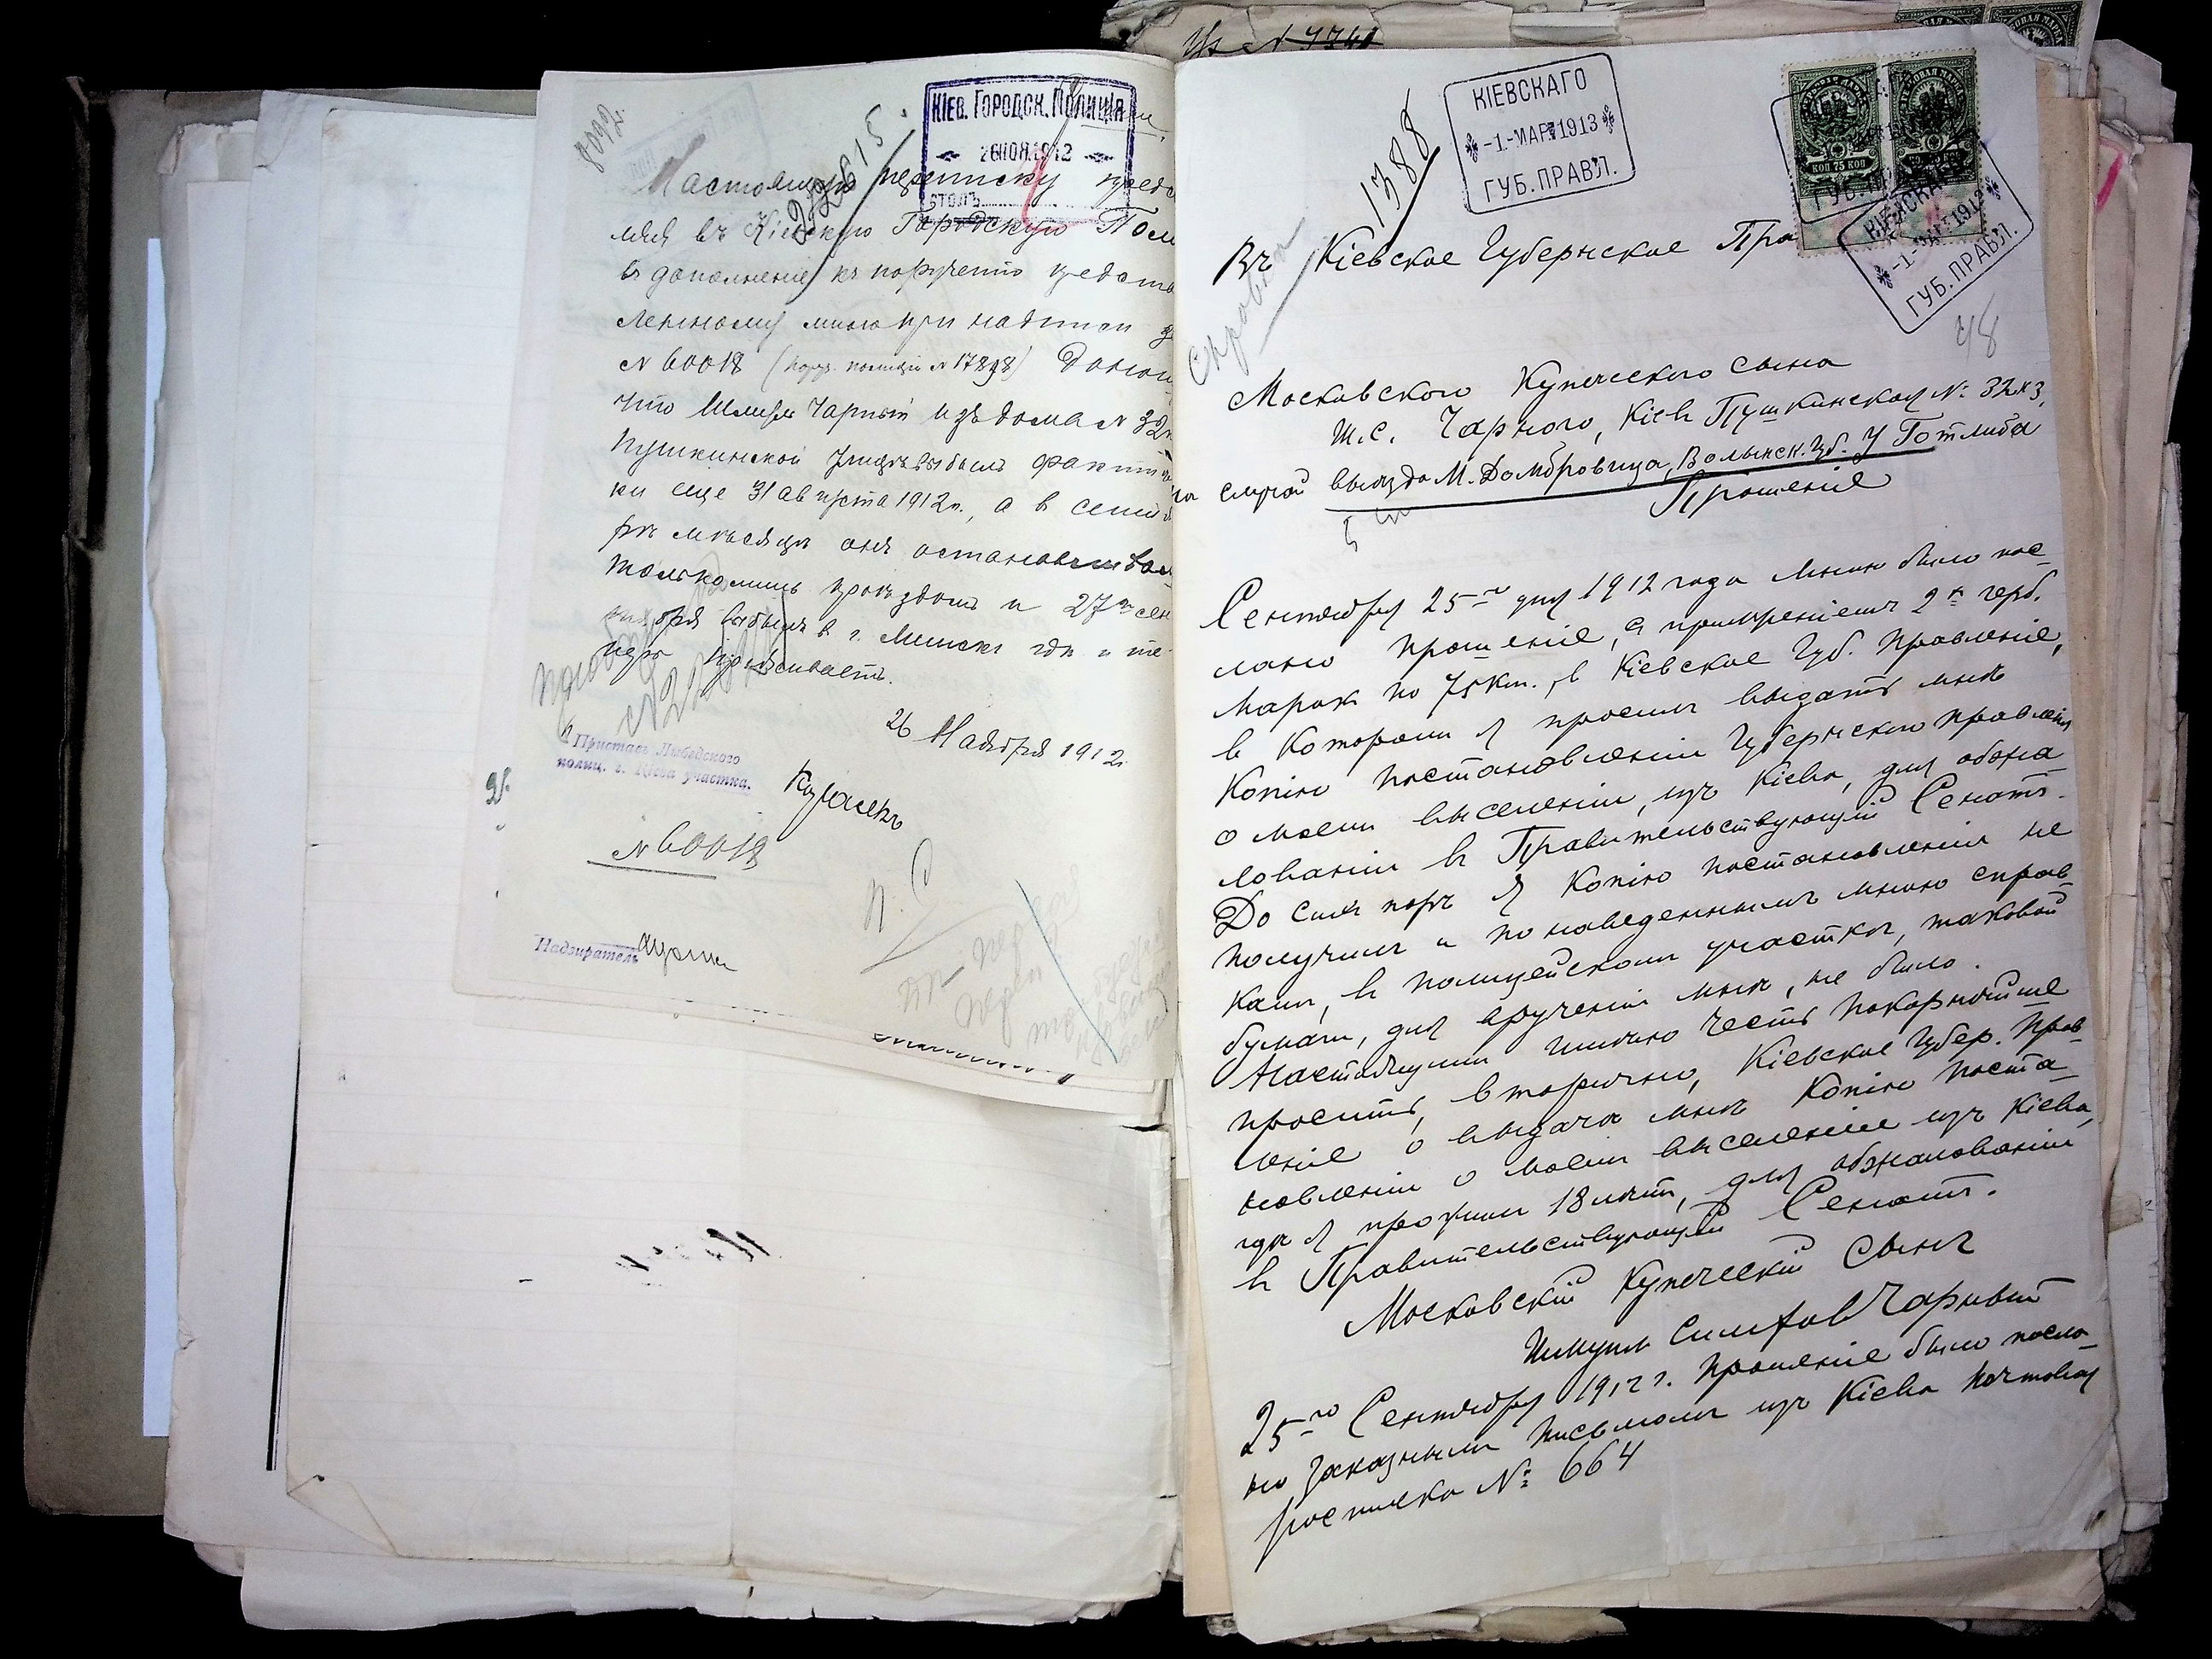 8092.
КІЕВ. ГОРОДСК. ПОЛИЦІЯ
26 НОЯ 1912
СТОЛЪ
Настоящую переписку предс
въ Кіевскую Городскую Пол
въ дополненіе къ порученію предста
вленному мною при надписи за
№ 60018 (пор. полиціи № 17898) Доношу
что Шмуль Чарный изъ дома № 32 по
Пушкинской улицѣ выбылъ фактиче
ки еще 31 августа 1912 г., а в сентя
брѣ мѣсяцѣ онъ останавливал
только лишь проѣздомъ и 27го сен
тября выбылъ в г. Минскъ гдѣ и те
перь проживаетъ.
26 Ноября 1912 г.
Приставъ Лыбедского
полиц. г. Кіева участка.
№ 60018
Надзиратель
Уг № 4740
1388
КІЕВСКАГО
-1.-МАР.1913
ГУБ.ПРАВЛ.
КОП 75 КОП
КІЕВСКАГО
-1.-МАР.1913
ГУБ.ПРАВЛ.
Справка
48
Въ Кіевское Губернское Пра
Московского Купеческого сына
Ш.С. Чарного, Кіевъ Пушкинская № 32 к 3,
на случай выѣзда М. Домбровица, Волынск. Губ. У Готлиба
Прошеніе
Сентября 25го дня 1912 года мною было пос
лано прошеніе, с приложеніемъ 2х герб.
марокъ по 75 коп., в Кіевское Губ. Правленіе,
в которомъ я просилъ выдать мнѣ
Копію постановленія Губернского правленія
о моемъ выселеніи, изъ Кіева, для обжа
лованія в Правительствующій Сенатъ.
До сихъ поръ я Копію постановленія не
получилъ и по наведеннымъ мною справ
камъ, в полицейскомъ участкѣ, таковой
бумаги, для врученія мнѣ, не было.
Настоящимъ имѣю честь покорнѣйше
просить, вторично, Кіевское Губер. Прав
леніе о выдачѣ мнѣ Копію поста
новленія о моемъ выселеніи изъ Кіева,
гдѣ я прожилъ 18 лѣтъ, для обжалованія
в Правительствующій Сенатъ.
Московскій Купеческій Сынъ
Шмуилъ Чарный
25го Сентября 1912 г. прошеніе было посла
но заказнымъ письмомъ изъ Кіева почтовая
росписка №: 664